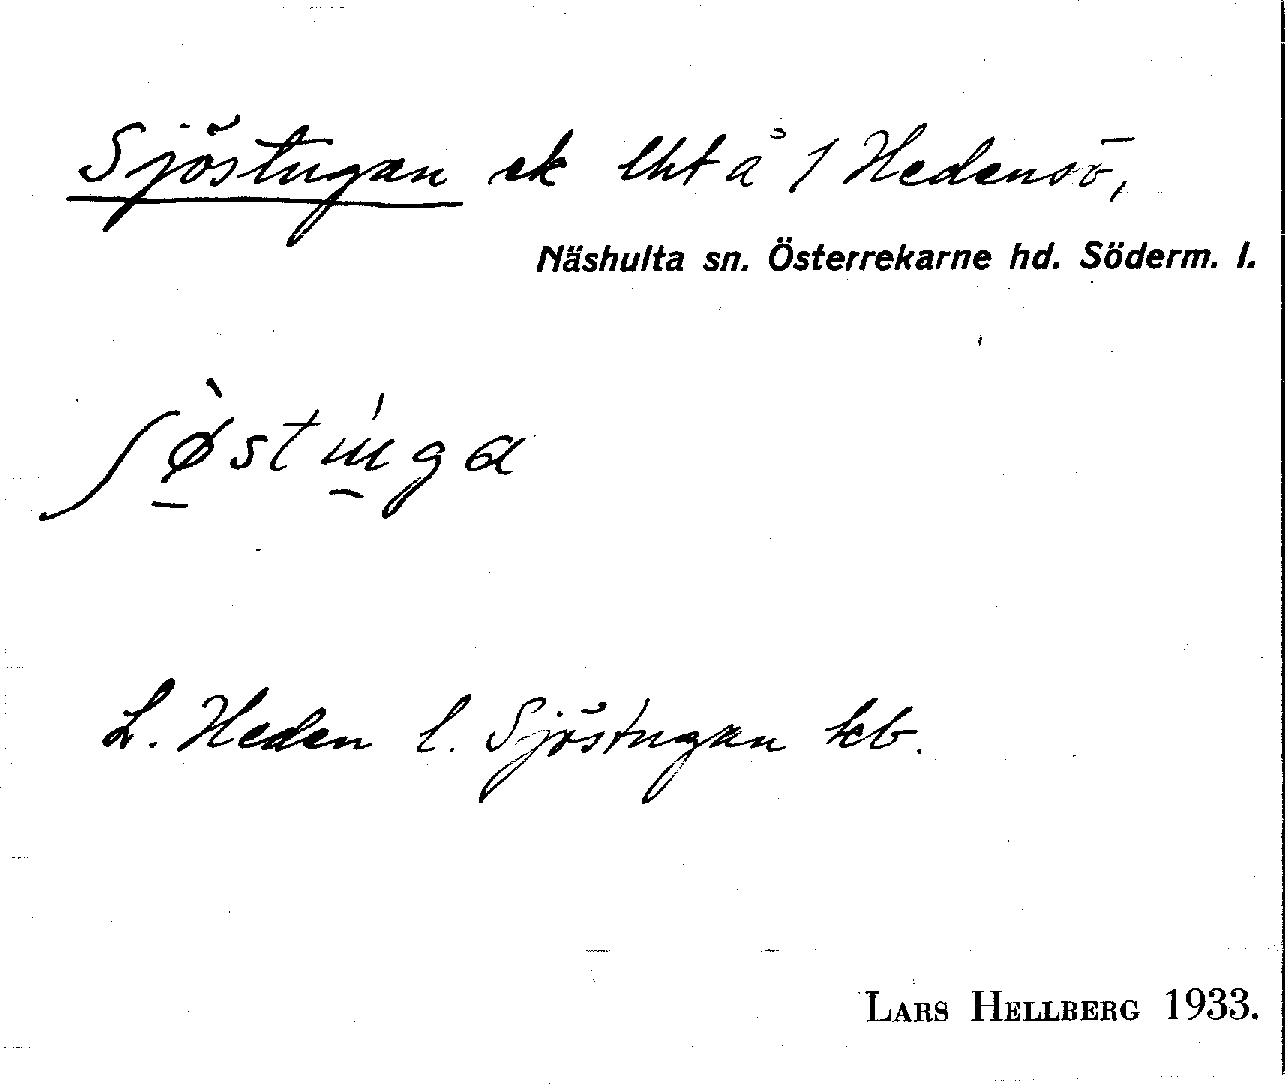 Sjöstugan ek lht å 1 Hedensö,
Näshulta sn. Österrekarne hd. Söderm. l.
L. Heden l. Sjöstugan kb.
LARS HELLBERG 1933.